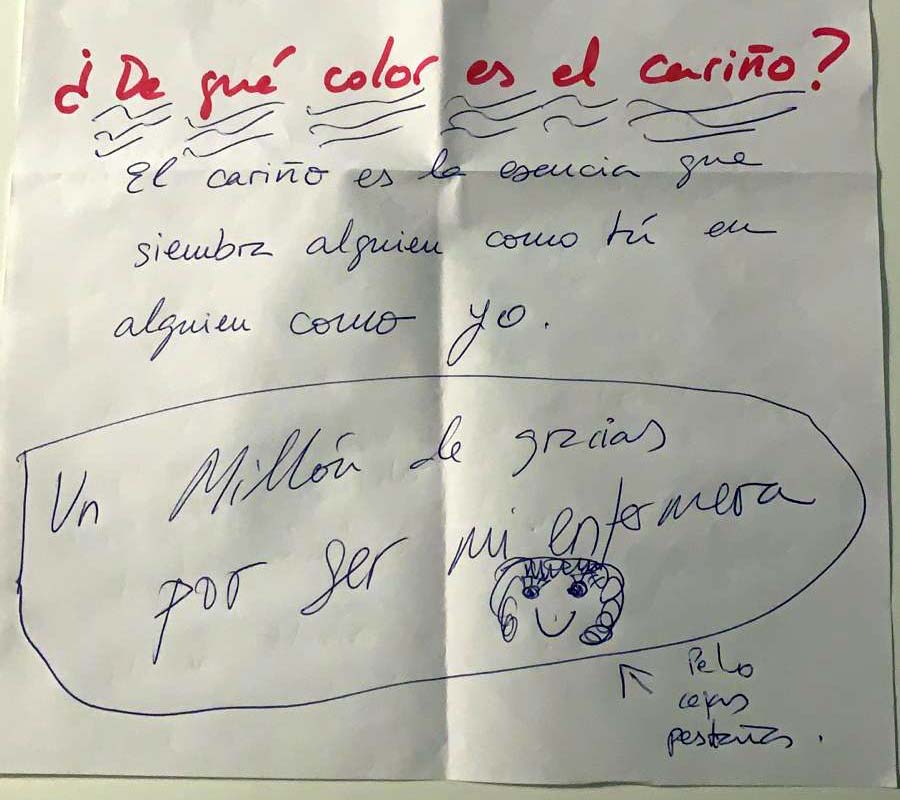 ¿De qué color es el cariño?
El cariño es la esencia que
siembra alguien como tú en
alguien como yo.
Un Millón de gracias
por ser mi enfermera
Pelo
cejas
pestañas.